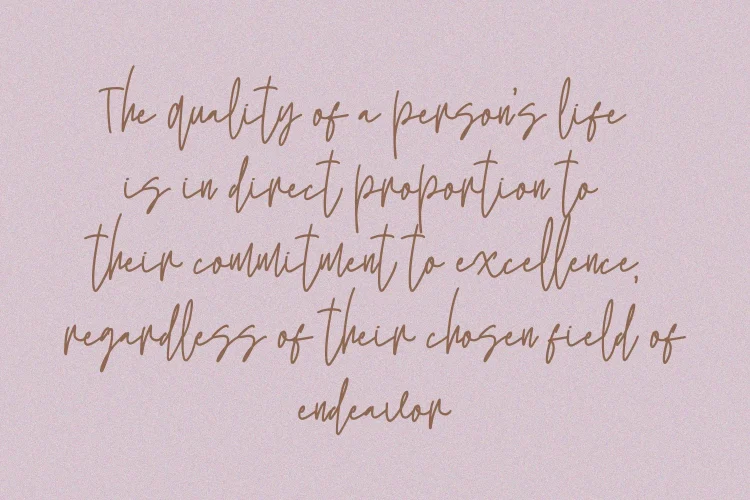 The quality of a person's life
is in direct proportion to
their commitment to excellence,
regardless of their chosen field of
endeavor